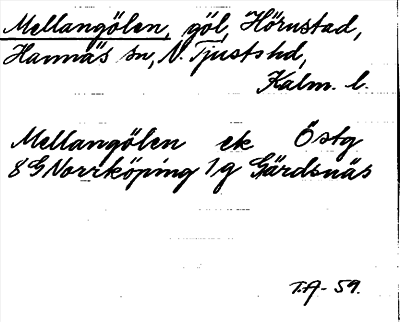 Mellangölen, göl, Hörnstad,
Hannäs sn, N. Tjusts hd,
Kalm. l.
Mellangölen ek Östg
8G Norrköping 1g Gärdsnäs
T.A- 59.